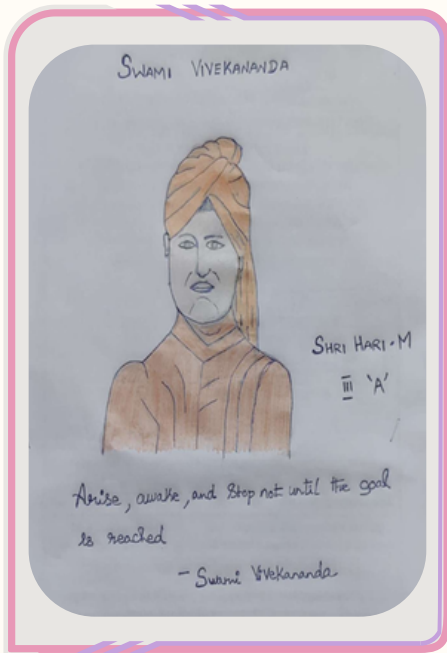 SWAMI VIVEKANANDA
SHRI HARI.M
III 'A'
Arise, awake, and stop not until the goal
is reached
- Swami Vivekananda